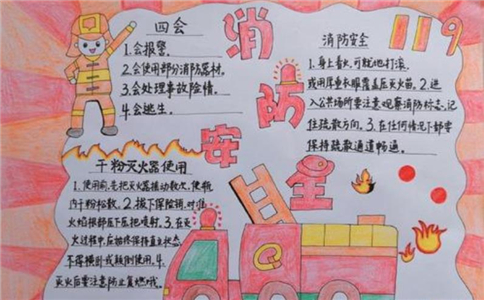 消防安全
119
四会
1.会报警.
2.会使用部分消防器材.
3.会处理事故险情.
4.会逃生.
消防安全
1.身上着火,可就地打滚,
或用厚重衣服覆盖压灭火苗.2.进
入公共场所要注意观察消防标志,记
住疏散方向.3.在任何情况下都要
保持疏散通道畅通.
干粉灭火器使用
1.使用前,先把灭火器摇动数次,使瓶
内干粉松散.2.拔下保险销,对准
火焰根部压下压把喷射.3.在灭
火过程中应始终保持直立状态,
不得横卧或颠倒使用.4.
灭火后要注意防止复燃哦.